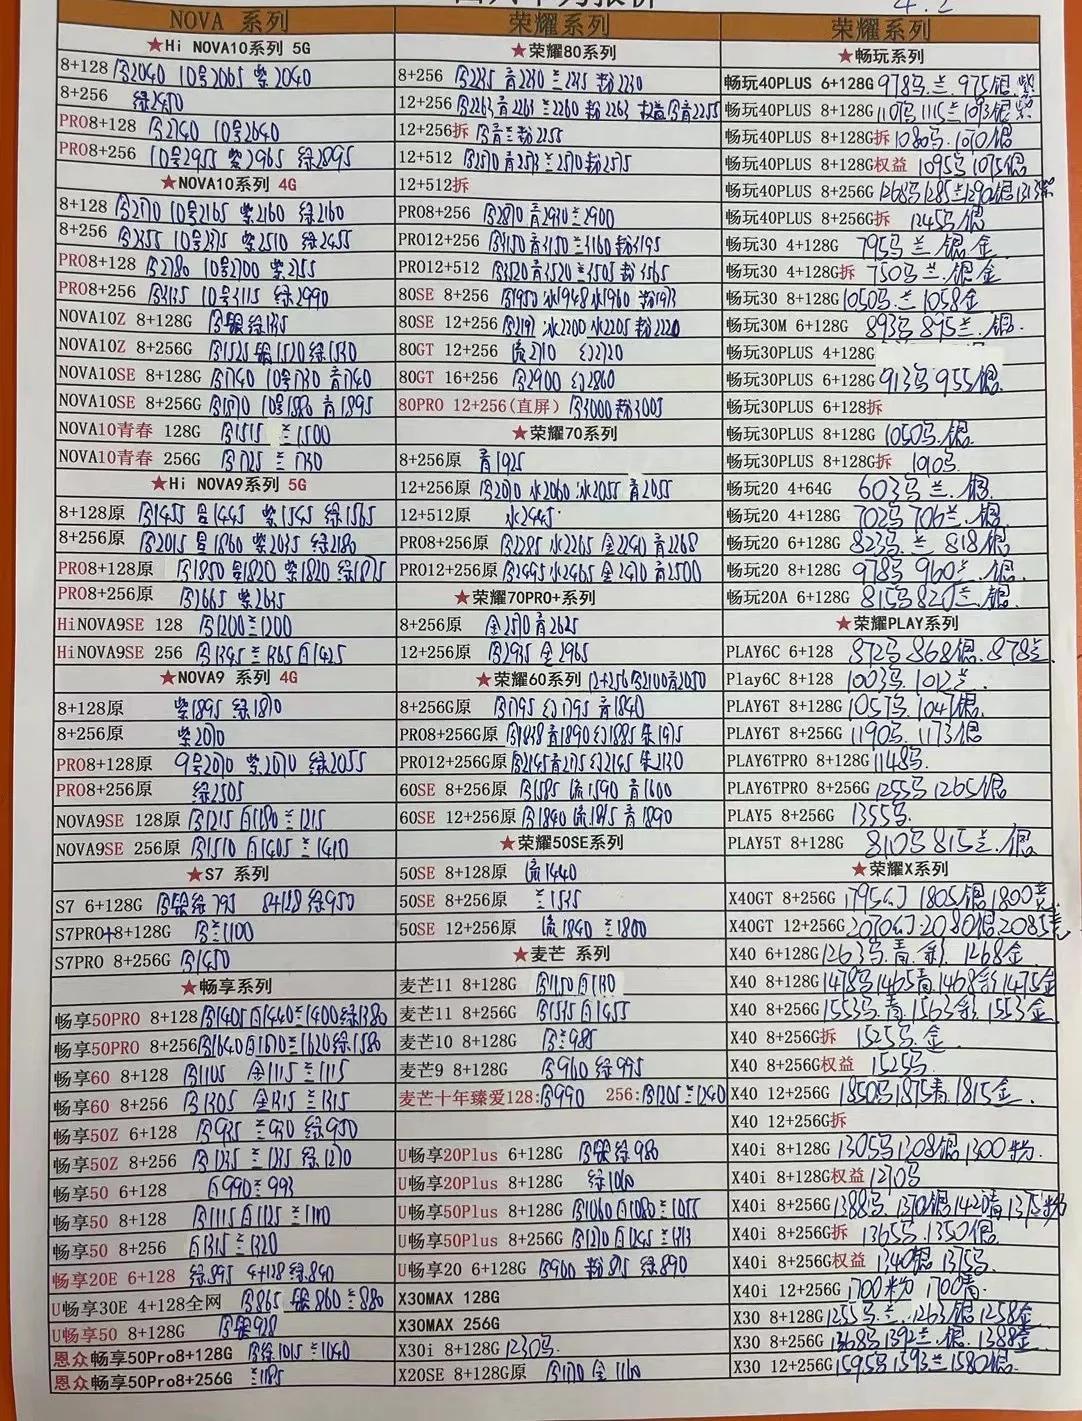 4.2
NOVA 系列
★Hi NOVA10系列 5G
8+128 2040 10号2065 紫2040
8+256 绿2450
PRO8+128 2740 10号2640
PRO8+256 10号2955 紫2965 绿2895
★NOVA10系列 4G
8+128 2170 10号2165 紫2160 绿2160
8+256 2355 10号2375 紫2510 绿2455
PRO8+128 2780 10号2700 紫2755
PRO8+256 3135 10号3115 绿2990
NOVA10Z 8+128G 银绿1335
NOVA10Z 8+256G 1525 银1520绿1530
NOVA10SE 8+128G 1740 10号1730 青1740
NOVA10SE 8+256G 10号1880 青1895
NOVA10青春 128G 1515 兰1500
NOVA10青春 256G 1725 兰1730
★Hi NOVA9系列 5G
8+128原 1455 号1445 紫1545 绿1565
8+256原 2015 号1860 紫2035 绿2180
PRO8+128原 1850 号1820 紫1820 绿1875
PRO8+256原 2665 紫2635
HiNOVA9SE 128 1200兰1200
HiNOVA9SE 256 1345兰1365白1425
★NOVA9 系列 4G
8+128原 紫1895 绿1870
8+256原 紫2070
PRO8+128原 9号2070 紫2070 绿2055
PRO8+256原 绿2505
NOVA9SE 128原 1215 白1180兰1215
NOVA9SE 256原 1510 白1405兰1410
★S7 系列
S7 6+128G 银绿795 8+128绿950
S7PRO+8+128G 兰1100
S7PRO 8+256G 1450
★畅享系列
畅享50PRO 8+128 1405白1440兰1400绿1380
畅享50PRO 8+256 1640白1670兰1620绿1580
畅享60 8+128 1105 金1115兰1115
畅享60 8+256 1305 金1315兰1315
畅享50Z 6+128 935 兰930 绿950
畅享50Z 8+256 1235 兰1235 绿1270
畅享50 6+128 白990兰993
畅享50 8+128 1115白1125兰1110
畅享50 8+256 白1315兰1320
畅享20E 6+128 绿895 4+128绿840
U畅享30E 4+128全网 865 银860兰880
U畅享50 8+128G 银928
恩众畅享50Pro8+128G 绿1015兰1040
恩众畅享50Pro8+256G 兰1185
荣耀系列
★荣耀80系列
8+256 2235 青2230兰2235 粉2230
12+256 2263青2263兰2260粉2263 权益青2255
12+256拆 青兰粉2255
12+512 2570青2573兰2570粉2575
12+512拆
PRO8+256 2870青2930兰2900
PRO12+256 3150青3150兰3160粉3195
PRO12+512 3520青3520兰3505粉3565
80SE 8+256 1950冰1948水1960 粉1973
80SE 12+256 2192 冰2200水2205粉2220
80GT 12+256 流2710 幻2720
80GT 16+256 2900幻2860
80PRO 12+256(直屏) 3000粉3005
★荣耀70系列
8+256原 青1925
12+256原 2070冰2060冰2055青2055
12+512原 冰2445
PRO8+256原 2285冰2265金2240青2268
PRO12+256原 2495冰2465金2470青2500
★荣耀70PRO+系列
8+256原 金2570青2625
12+256原 2935 金2965
★荣耀60系列 12+256 2100青2050
8+256G原 1795幻1795青1840
PRO8+256G原 1838青1890幻1885朱1975
PRO12+256G原 2145青2175幻2145朱2130
60SE 8+256原 1585流1590青1600
60SE 12+256原 1840流1845青1890
★荣耀50SE系列
50SE 8+128原 流1440
50SE 8+256原 兰1535
50SE 12+256原 流1840兰1800
★麦芒 系列
麦芒11 8+128G 1150白1130
麦芒11 8+256G 1535白1455
麦芒10 8+128G 兰985
麦芒9 8+128G 960 绿995
麦芒十年臻爱128: 990 256: 1205兰1240
U畅享20Plus 6+128G 银绿980
U畅享20Plus 8+128G 绿1060
U畅享50Plus 8+128G 1060白1080兰1055
U畅享50Plus 8+256G 1270白1245兰1313
U畅享20 6+128G 900 粉875 绿890
X30MAX 128G
X30MAX 256G
X30i 8+128G 1230.
X20SE 8+128G原 1170 金1160
荣耀系列
★畅玩系列
畅玩40PLUS 6+128G 978.兰.975银.紫
畅玩40PLUS 8+128G 1107 1115兰1093银紫
畅玩40PLUS 8+128G拆 1080.1070银
畅玩40PLUS 8+128G权益 1095 1075银
畅玩40PLUS 8+256G 1268 1285兰1290银1313紫
畅玩40PLUS 8+256G拆 1245 银
畅玩30 4+128G 795 兰.银.金
畅玩30 4+128G拆 750 兰.银金
畅玩30 8+128G 1050.兰1058金
畅玩30M 6+128G 893 895兰.银.
畅玩30PLUS 4+128G
畅玩30PLUS 6+128G 913 955银.
畅玩30PLUS 6+128拆
畅玩30PLUS 8+128G 1050.银.
畅玩30PLUS 8+128G拆
畅玩20 4+64G 603 兰.银.
畅玩20 4+128G 702 706兰.银.
畅玩20 6+128G 823.兰 818银
畅玩20 8+128G 978 960兰.银.
畅玩20A 6+128G 815 820兰.银.
★荣耀PLAY系列
PLAY6C 6+128 872 868银.878兰
Play6C 8+128 1003.1012兰.
PLAY6T 8+128G 1057.1047银.
PLAY6T 8+256G 1190.1173银
PLAY6TPRO 8+128G 1148
PLAY6TPRO 8+256G 1255 1265银
PLAY5 8+256G 1355
PLAY5T 8+128G 810 815兰.银
★荣耀X系列
X40GT 8+256G 1795幻 1805银 1800
X40GT 12+256G 2070幻.2080银.2085
X40 6+128G 1263.青.彩. 1268金.
X40 8+128G 1478 1465青.1468彩1475金
X40 8+256G 1553.青.1563彩.1553金
X40 8+256G拆 1525.金.
X40 8+256G权益 1525
X40 12+256G 1850 1875青.1815金.
X40 12+256G拆
X40i 8+128G 1305 1308银1300粉.
X40i 8+128G权益 1270
X40i 8+256G 1388.1370银1420晴1375粉
X40i 8+256G拆 1365.1350银.
X40i 8+256G权益 1340银1375
X40i 12+256G 1700粉 1700晴
X30 8+128G 1255兰.1263银1258金
X30 8+256G 1368 1392兰.银.1388金.
X30 12+256G 1595 1593兰1580银.